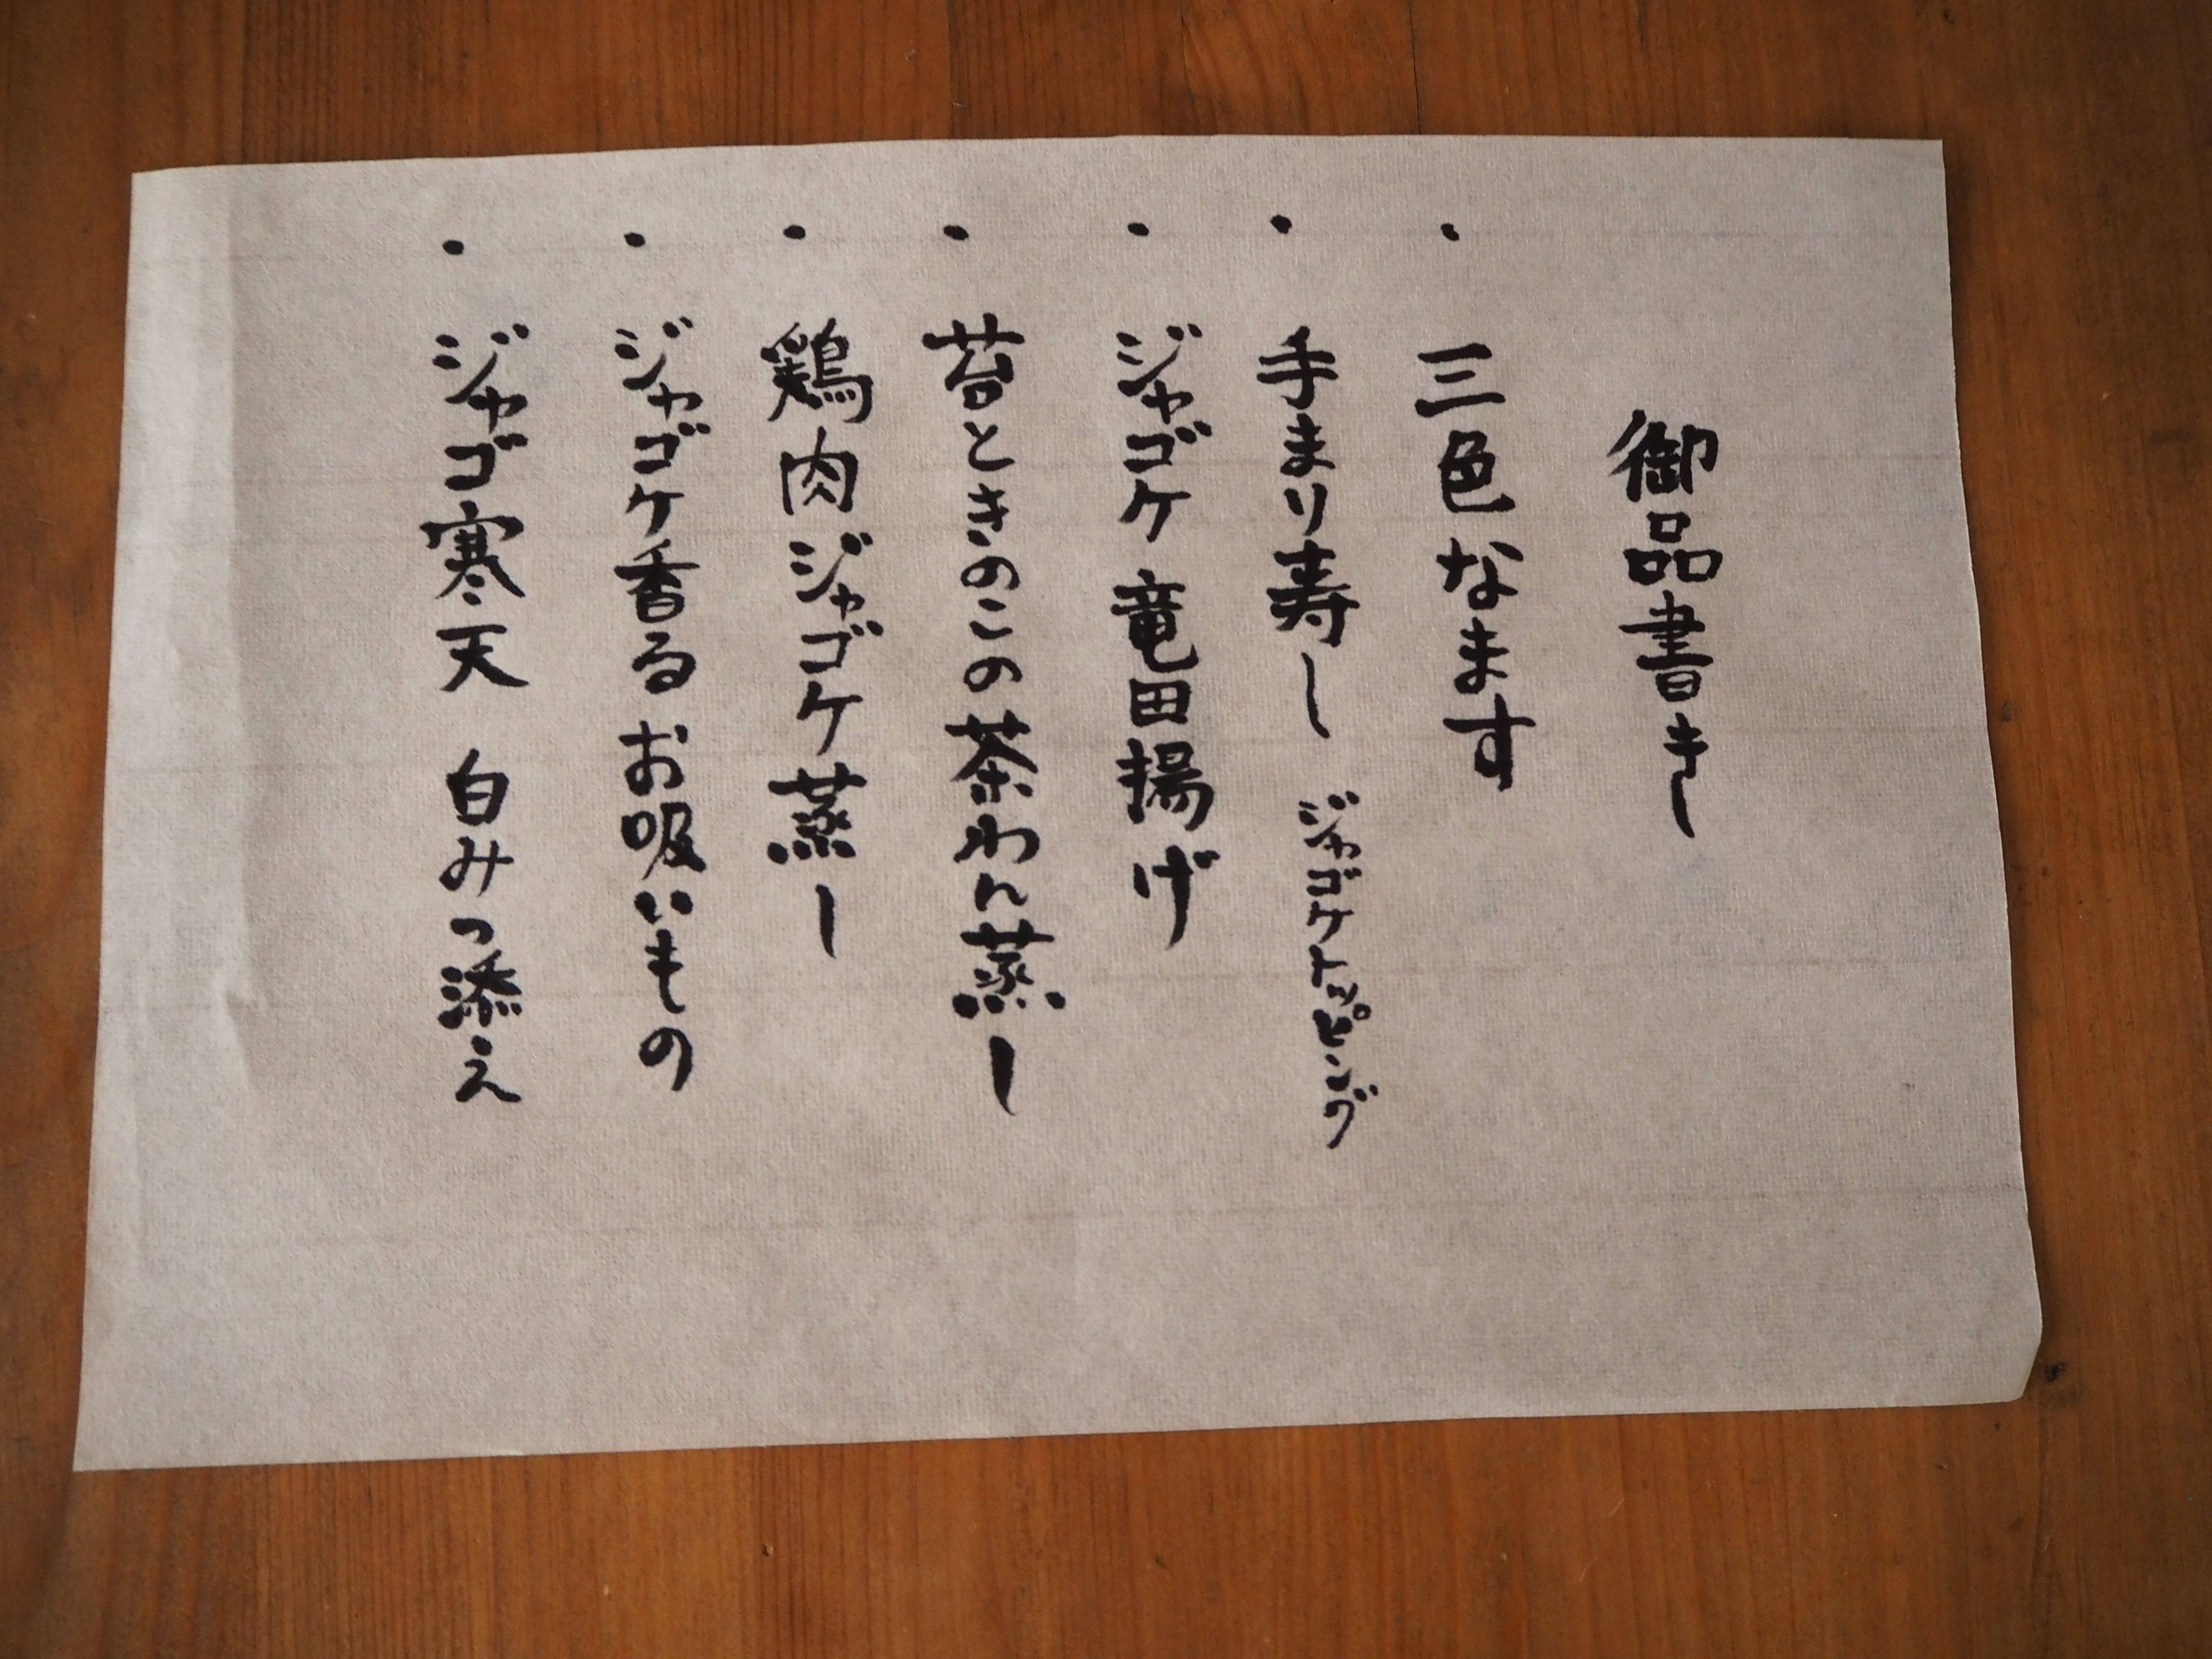 御品書き
・三色なます
・手まり寿し ジャゴケトッピング
・ジャゴケ竜田揚げ
・苔ときのこの茶わん蒸し
・鶏肉ジャゴケ蒸し
・ジャゴケ香るお吸いもの
・ジャゴ寒天 白みつ添え